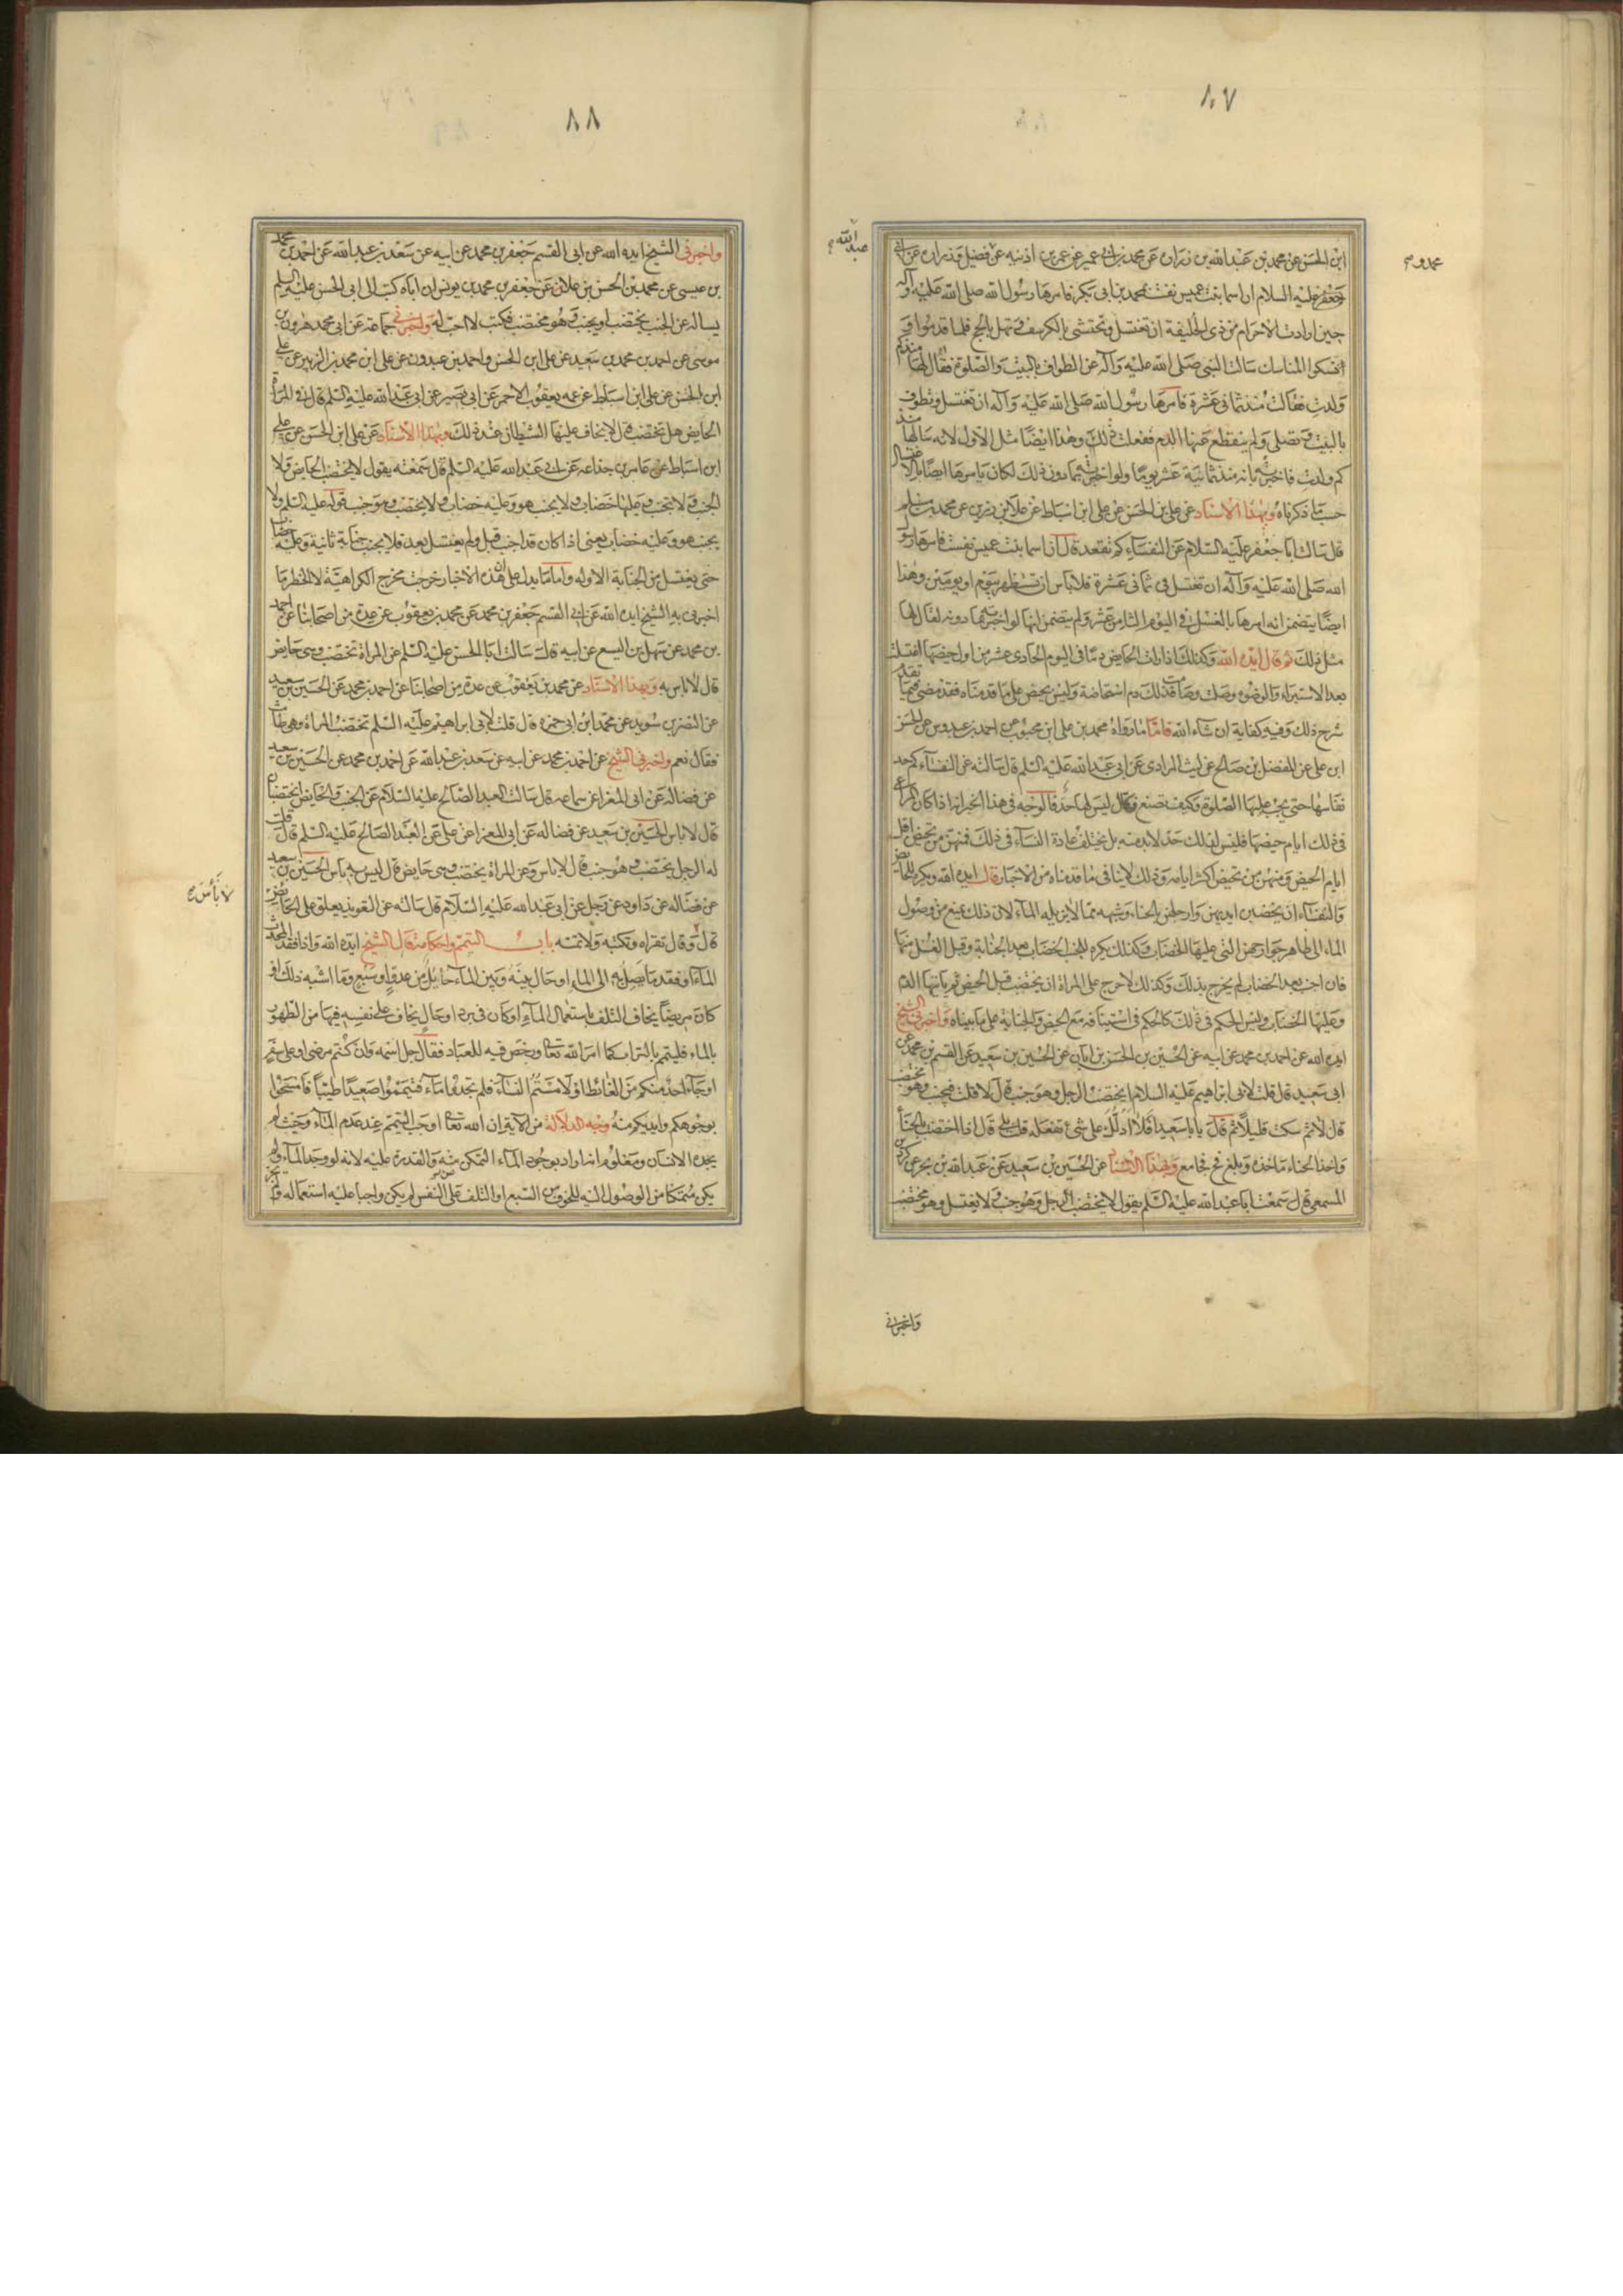 ٨٧
ابن الحسن عن محمد بن عبدالله بن زرارة عن محمد بن ابى عمير عن عمر بن اذنيه عن فضيل وزرارة عن ابى
جعفر عليه السلام ان اسما بنت عميس نفست بمحمد بن ابى بكر فامرها رسول الله صلى الله عليه وآله
حين ارادت الاحرام من ذى الحليفة ان تغتسل وتحتشى بالكرسف وتهل بالحج فلما قدموا و
نسكوا المناسك سالت النبى صلى الله عليه وآله عن الطواف بالبيت والصلوة فقال لها منذكم
ولدت فقالت منذ ثمانى عشرة فامرها رسول الله صلى الله عليه وآله ان تغتسل وتطوف
بالبيت وتصلى ولم ينقطع عنها الدم ففعلت ذلك وهذا ايضا مثل الاول لانه سالها منذ
كم ولدت فاخبرته بانه منذ ثمانية عشر يوما ولو اخبرته بما دون ذلك لكان يامرها ايضا بالاغتسال
حسب ما ذكرناه وبهذا الاسناد عن على بن الحسن عن على ابن اسباط عن علا بن رزين عن محمد بن مسلم
قال سالت ابا جعفر عليه السلام عن النفساء كم تقعد قال ان اسما بنت عميس نفست فامرها رسول
الله صلى الله عليه وآله ان تغتسل فى ثمانى عشرة فلا باس ان تستظهر بيوم او يومين وهذا
ايضا يتضمن انه امرها بالغسل فى اليوم الثامن عشر ولم يتضمن انها لو اخبرته بما دونه لقال لها
مثل ذلك ثم قال ايده الله وكذلك اذا رات الحايض دما فى اليوم الحادى عشر من اول حيضها اغتسلت
بعد الاستبراء والوضوء وصلت وصامت فذلك دم استحاضة وليس بحيض على ما قدمناه فقد مضى فيما تقدم
شرح ذلك وفيه كفاية ان شاء الله فاما ما رواه محمد بن على ابن محبوب عن احمد بن عبدوس عن الحسن
ابن على عن المفضل بن صالح عن ليث المرادى عن ابى عبد الله عليه السلم قال سالته عن النفساء كم حد
نفاسها حتى يجب عليها الصلوة وكيف تصنع فقال ليس لها حد فالوجه فى هذا الخبر انها اذا كان
فى ذلك ايام حيضها فليس لذلك حد لابد منه بل يختلف عادة النساء فى ذلك فمنهن من تحيض اقل
ايام الحيض ومنهن من تحيض اكثر ايامه وذلك لا ينافى ما قدمناه من الاخبار قال ايده الله ويكره للحايض
والنفساء ان يخضبن ايديهن وارجلهن بالحناء وشبهه مما لا يزيله الماء لان ذلك يمنع من وصول
الماء الى ظاهر جوارحهن التى عليها الخضاب وكذلك يكره للجنب الخضاب بعد الجنابة وقبل الغسل منها
فان اجنب بعد الخضاب لم يحرج بذلك وكذلك لا حرج على المراة ان يختضب قبل الحيض ثم ياتيها الدم
وعليها الخضاب وليس الحكم فى ذلك كالحكم فى استينافه مع الحيض والجنابة على ما بيناه واخبرنى الشيخ
ايده الله عن احمد بن محمد عن ابيه عن الحسين بن الحسن بن ابان عن الحسين بن سعيد عن القسم بن محمد عن
ابى سعيد قال قلت لابى ابراهيم عليه السلام ايختضب الرجل وهو جنب قال لا قلت فيجنب وهو مختضب
قال لا ثم سكت قليلا ثم قال يا با سعيد افلا ادلك على شئ تفعله قلت بلى قال اذا اختضبت بالحنا
واخذ الحناء ماخذه وبلغ فح فجامع وبهذا الاسناد عن الحسين بن سعيد عن عبد الله بن بحر عن كردين
المسمعى قال سمعت ابا عبد الله عليه السلم يقول لا يختضب الرجل وهو جنب ولا يغتسل وهو مختضب
واخبرنى
عبد الله
٨٨
واخبرنى الشيخ ايده الله عن ابى القسم جعفر بن محمد عن ابيه عن سعد بن عبد الله عن احمد بن محمد
بن عيسى عن محمد بن الحسن بن علان عن جعفر بن محمد بن يونس ان اباه كتب الى ابى الحسن عليه السلم
يساله عن الجنب يختضب او يجنب وهو مختضب فكتب لا احب له واخبرنى جماعة عن ابى محمد هرون بن
موسى عن احمد بن محمد بن سعيد عن على ابن الحسن واحمد بن عبدون عن على ابن محمد بن الزبير عن على
ابن الحسن عن على ابن اسباط عن عمه يعقوب الاحمر عن ابى بصير عن ابى عبد الله عليه السلم قال فى المراة
الحايض هل تختضب قال لا يخاف عليها الشيطان عند ذلك وبهذا الاسناد عن على ابن الحسن عن على
ابن اسباط عن عامر بن جذاعه عن ابى عبد الله عليه السلم قال سمعته يقول لا يختضب الحايض ولا
الجنب ولا تجنب وعليها خضاب ولا يجنب هو وعليه خضاب ولا يختضب وهو جنب قوله عليه السلم ولا
يجنب هو وعليه خضاب يعنى اذا كان قد اجنب قبل ولم يغتسل بعد فلا يجنب جنابة ثانية وعليه خضاب
حتى يغتسل من الجنابة الاوله واما ما يدل على ان هذه الاخبار خرجت مخرج الكراهية لا الحظر ما
اخبرنى به الشيخ ايده الله عن ابى القسم جعفر بن محمد عن محمد بن يعقوب عن عدة من اصحابنا عن احمد
بن محمد عن سهل بن اليسع عن ابيه قال سالت ابا الحسن عليه السلم عن المراة تختضب وهى حايض
قال لا باس به وبهذا الاسناد عن محمد بن يعقوب عن عدة من اصحابنا عن احمد بن محمد عن الحسين بن سعيد
عن النضر بن سويد عن محمد ابن ابى حمزه قال قلت لابى ابراهيم عليه السلم تختضب المراة وهى طامث
فقال نعم واخبرنى الشيخ عن احمد بن محمد عن ابيه عن سعد بن عبد الله عن احمد بن محمد عن الحسين بن سعيد
عن فضاله عن ابى المغرا عن سماعه قال سالت العبد الصالح عليه السلام عن الجنب والحايض ايختضبان
قال لا باس الحسين بن سعيد عن فضاله عن ابى المعزا عن على عن العبد الصالح عليه السلم قال قلت
له الرجل يختضب وهو جنب قال لا باس وعن المراة يختضب وهى حايض قال ليس به باس الحسين بن سعيد
عن فضاله عن داود عن رجل عن ابى عبد الله عليه السلام قال سالته عن التعويذ يعلق على الحايض
قال وقال تقراه وتكتبه ولا تمسه باب التيمم واحكامه قال الشيخ ايده الله واذا فقد المحدث
الماء او فقد ما يصل به الى الماء او حال بينه وبين الماء حائل من عدو او سبع وما اشبه ذلك او
كان مريضا يخاف التلف باستعمال الماء او كان فى برد او حال يخاف على نفسه فيها من الطهور
بالماء فليتيمم بالتراب كما امر الله تعالى ورخص فيه للعباد فقال جل اسمه وان كنتم مرضى او على سفر
او جاء احد منكم من الغائط او لامستم النساء فلم تجدوا ماء فتيمموا صعيدا طيبا فامسحوا
بوجوهكم وايديكم منه وجه الدلالة من الاية ان الله تعالى اوجب التيمم عند عدم الماء وحيث لم
يجده الانسان ومعلوم انه اراد بوجود الماء التمكن منه والقدرة عليه لانه لو وجد الماء ولم
يكن متمكنا من الوصول اليه للخوف من السبع او التلف على النفس لم يكن واجبا عليه استعماله ولم يجز
لا باس